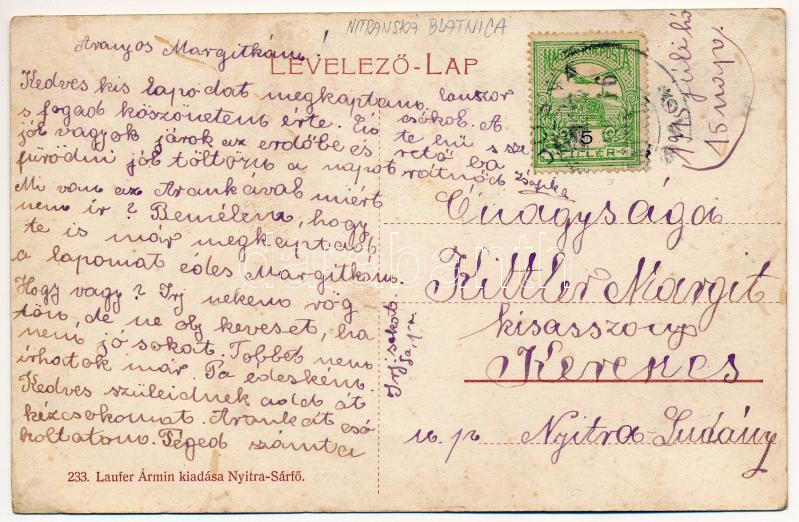 NITRANSKÁ BLATNICA
Aranyos Margitkám!
LEVELEZŐ-LAP
Kedves kis lapodat megkaptam
s fogad köszönetem érte. Én
jól vagyok járok az erdőbe és
fürödni jól töltöm a napot
Mi van az Arankával miért
nem ir? Remélem, hogy
te is már megkaptad
a lapomat édes Margitkám.
Hogy vagy? Irj nekem rög
tön, de ne oly keveset, ha
nem jó sokat. Többet nem
irhatok már. Pá édeském.
Kedves szüleidnek add át
kézcsokomat. Arankát csó
koltatom. Téged számta
lanszor
csókol. A
te hű s sze
rető ba
rátnőd Zsófika
Irj sokat
1915 júli hó
15 nap.
MAGYAR KIR. POSTA
5
FILLÉR
Őnagysága
Kittler Margit
kisasszony
Kerencs
u. p. Nyitra-Ludány
darabanth
233. Laufer Ármin kiadása Nyitra-Sárfő.